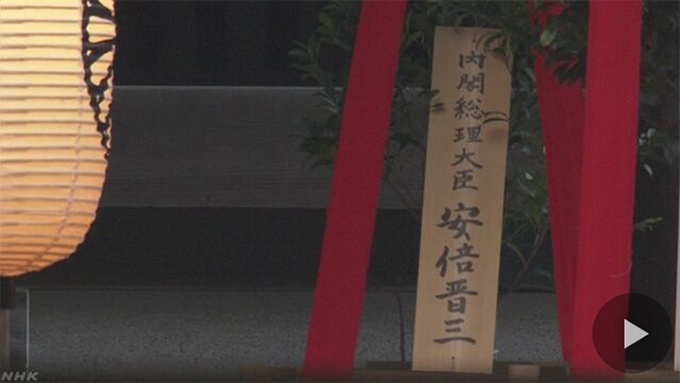 内閣総理大臣 安倍晋三
NHK